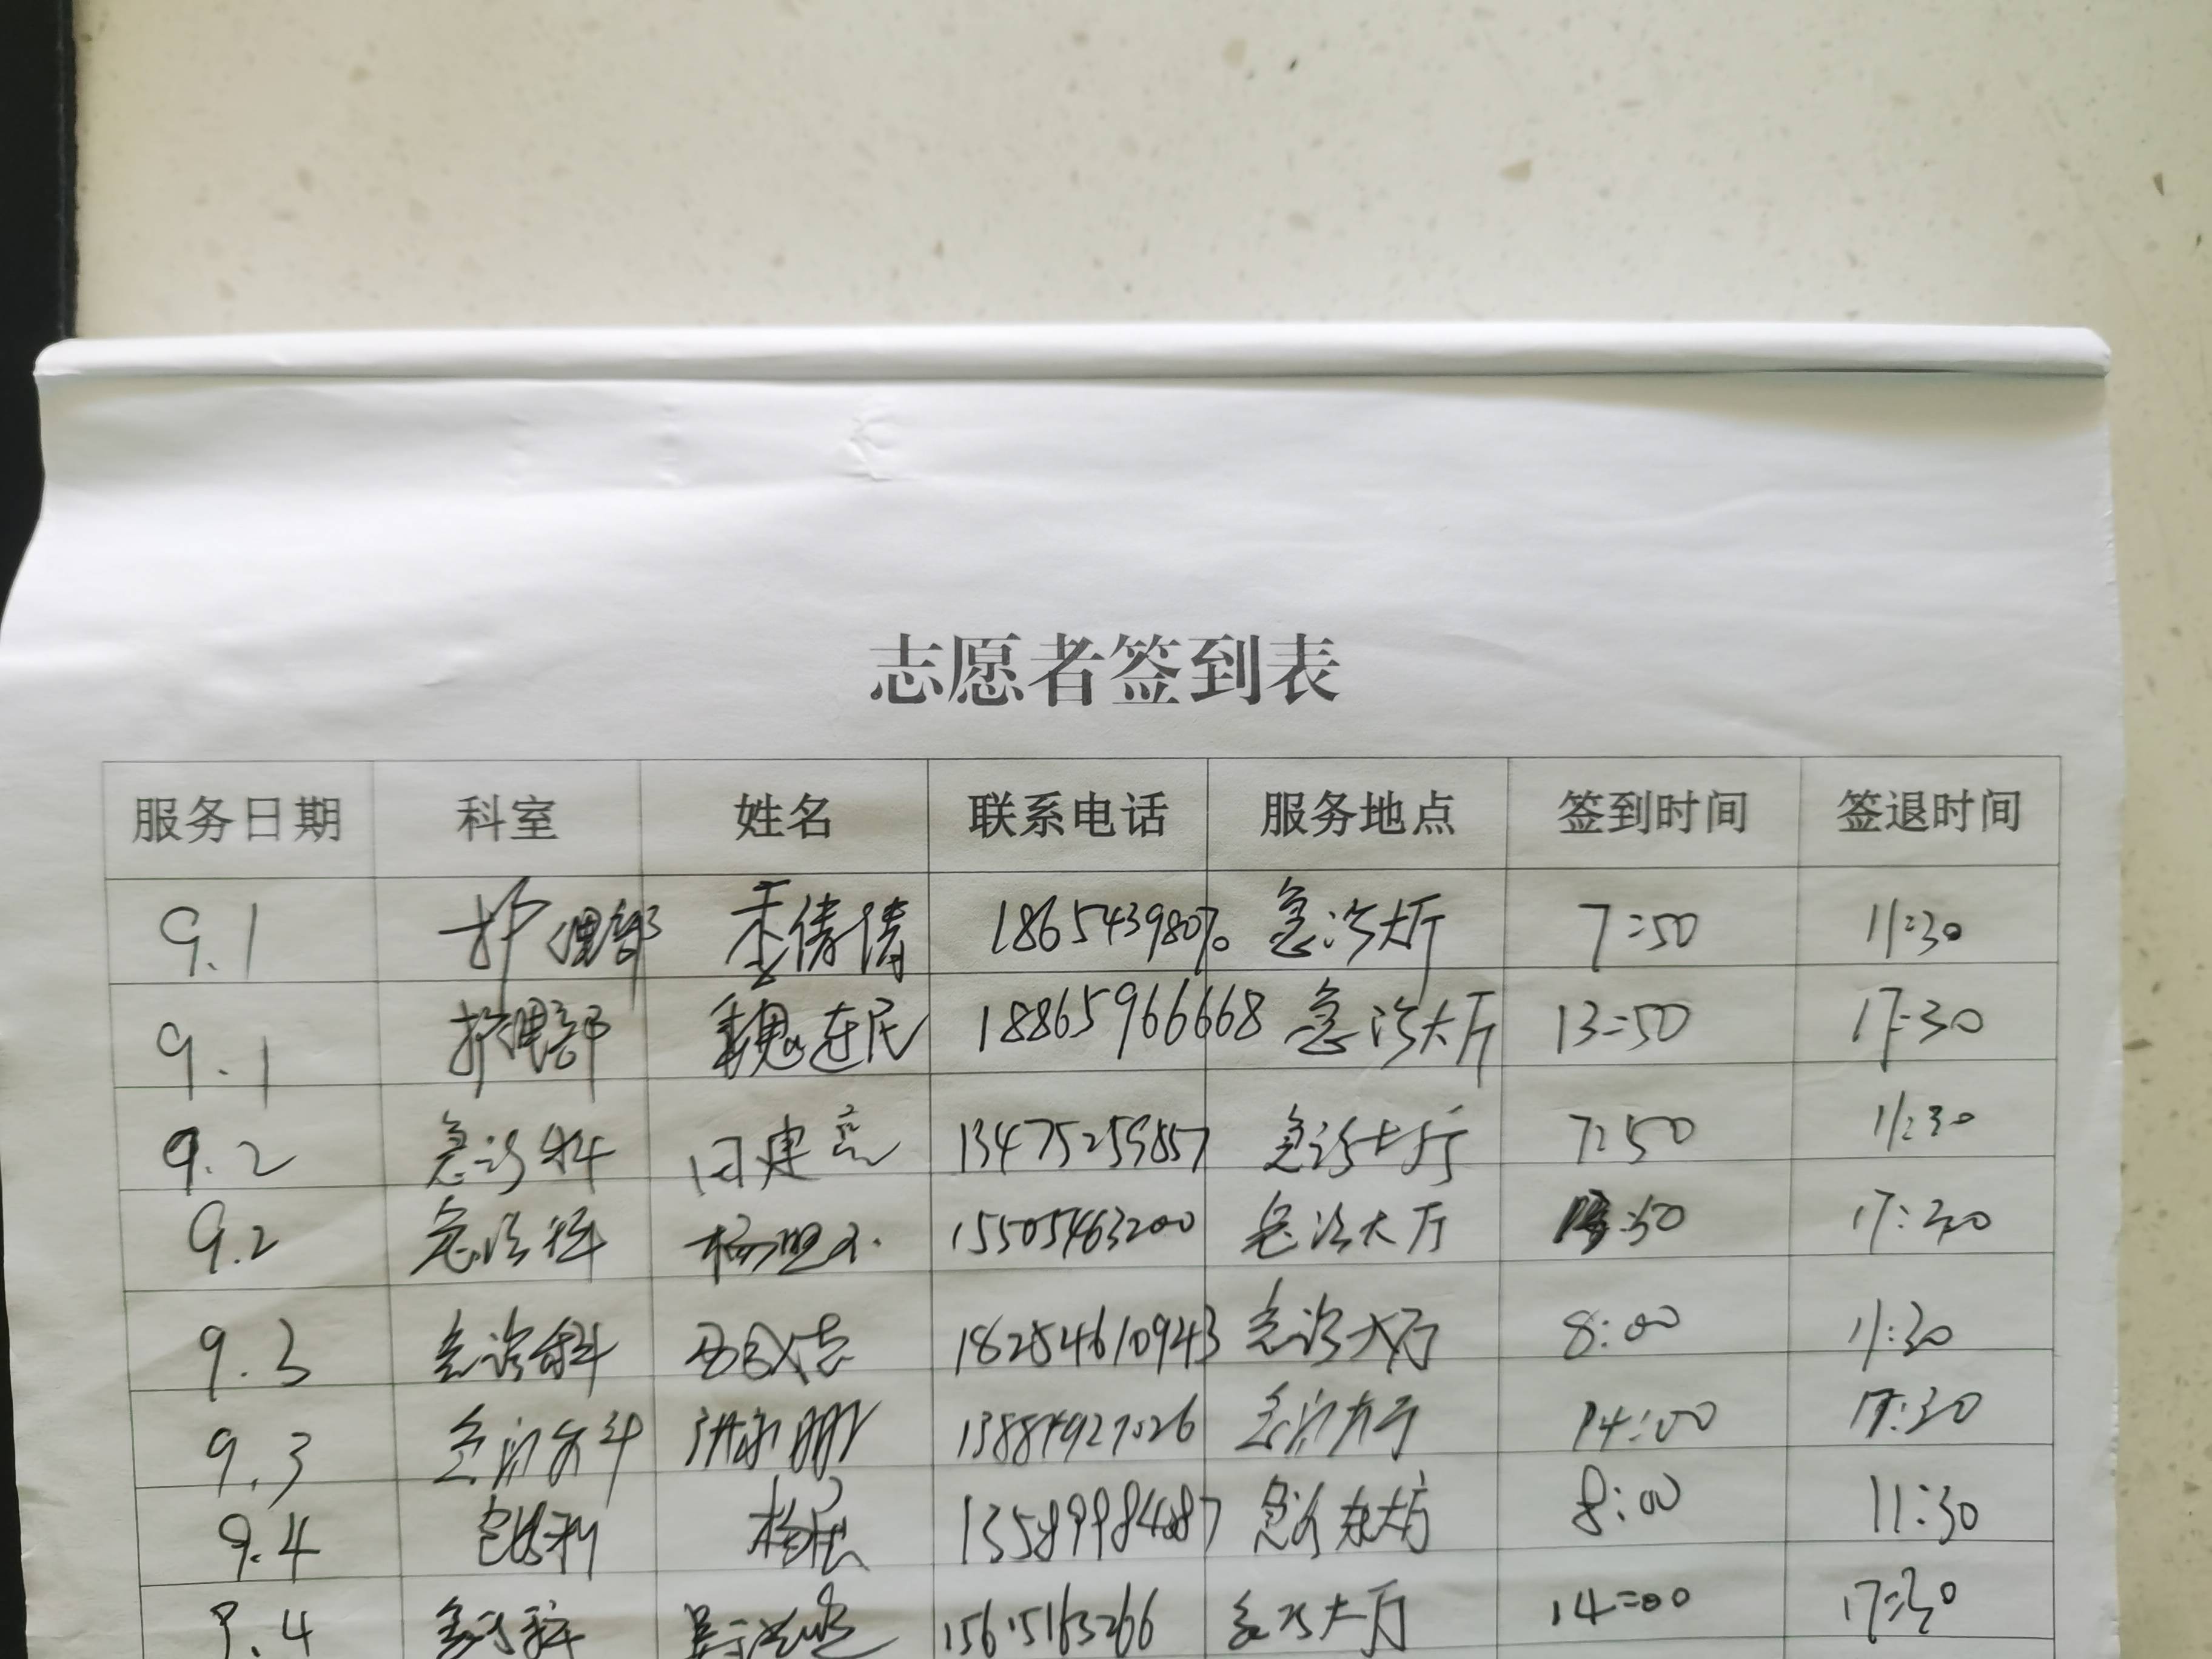 志愿者签到表
服务日期 科室 姓名 联系电话 服务地点 签到时间 签退时间
9.1 护理部 季倩倩 急诊大厅 7:50 11:30
9.1 护理部 魏连民 18865966668 急诊大厅 13:50 17:30
9.2 急诊科 闫建亮 13475259857 急诊大厅 7:50 11:30
9.2 急诊科 15505463200 急诊大厅 17:30
9.3 急诊科 18254610943 急诊大厅 8:00 11:30
9.3 急诊科 急诊大厅 14:00 17:30
9.4 急诊科 13589984087 急诊大厅 8:00 11:30
9.4 急诊科 急诊大厅 14:00 17:30